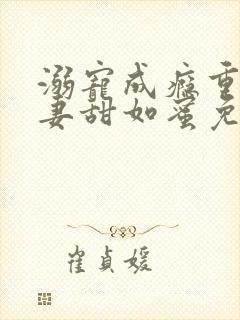 溺寵成癮重
妻甜如蜜免
崔貞媛